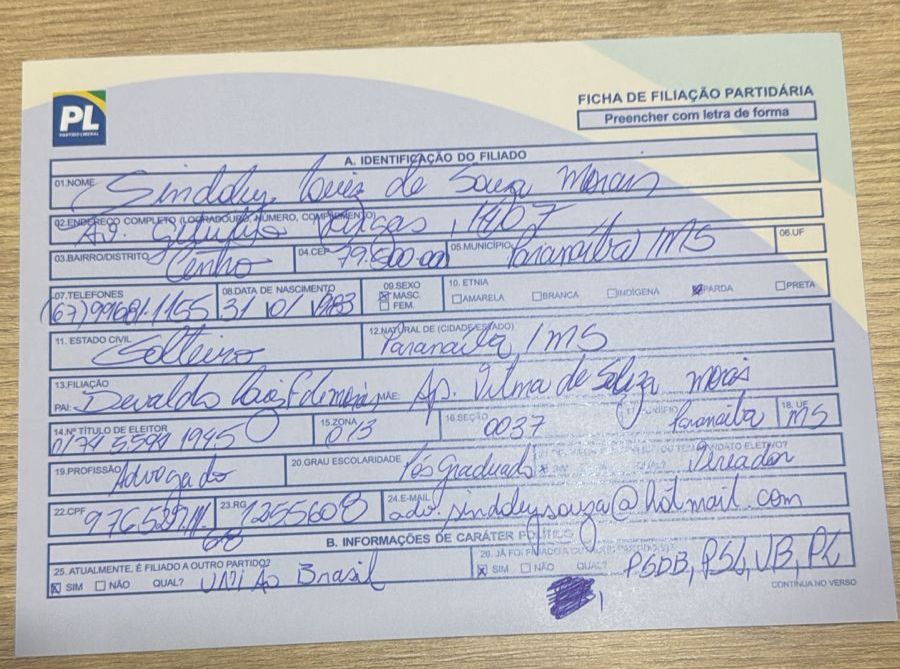 PL
PARTIDO LIBERAL
FICHA DE FILIAÇÃO PARTIDÁRIA
Preencher com letra de forma
A. IDENTIFICAÇÃO DO FILIADO
01.NOME Sindoley Luiz de Souza Morais
02.ENDEREÇO COMPLETO (LOGRADOURO, NÚMERO, COMPLEMENTO) Av. Getulio Vargas, 1407
03.BAIRRO/DISTRITO Centro 04.CEP 79.500-000 05.MUNICÍPIO Paranaíba/MS 06.UF
07.TELEFONES (67)99681.1155 08.DATA DE NASCIMENTO 31/01/1983 09.SEXO MASC. FEM. 10. ETNIA AMARELA BRANCA INDÍGENA PARDA PRETA
11. ESTADO CIVIL Solteiro 12.NATURAL DE (CIDADE/ESTADO) Paranaíba/MS
13.FILIAÇÃO
PAI: Devaldo MÃE: Ap. Vilma de Souza Morais
14.Nº TÍTULO DE ELEITOR 15.ZONA 013 16.SEÇÃO 0037 17.MUNICÍPIO Paranaíba 18.UF MS
19.PROFISSÃO Advogado 20.GRAU ESCOLARIDADE Pós Graduado SIM QUAL? Vereador
22.CPF 23.RG 1255608 24.E-MAIL adv.sindoleysouza@hotmail.com
B. INFORMAÇÕES DE CARÁTER POLÍTICO
25. ATUALMENTE, É FILIADO A OUTRO PARTIDO?
SIM NÃO QUAL? União Brasil
26. JÁ FOI FILIADO A OUTRO PARTIDO?
SIM NÃO QUAL? PSDB, PSL, UB, PL
CONTINUA NO VERSO